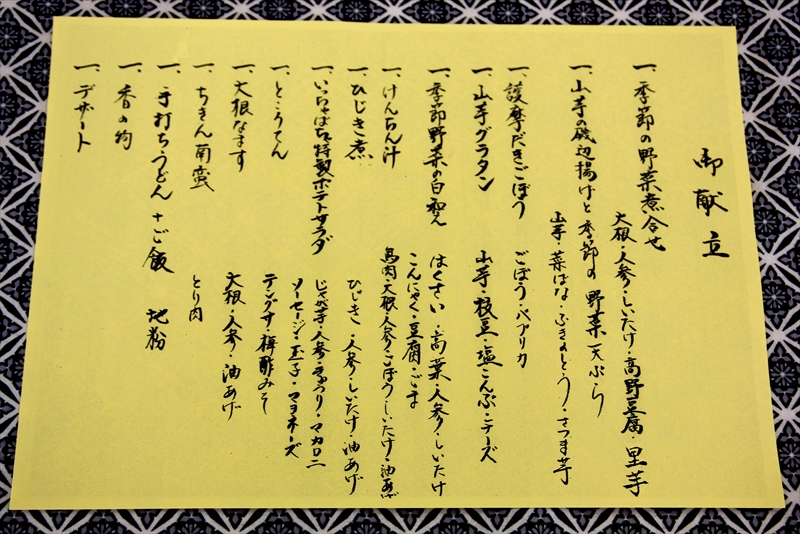 御献立
一、季節の野菜煮合せ
大根・人参・しいたけ・高野豆腐・里芋
一、山芋の磯辺揚げと季節の野菜天ぷら
山芋・菜ばな・ふきのとう・さつま芋
一、護摩だきごぼう
ごぼう・パプリカ
一、山芋グラタン
山芋・枝豆・塩こんぶ・チーズ
一、季節野菜の白和え
はくさい・高菜・人参・しいたけ
こんにゃく・豆腐・ごま
一、けんちん汁
鳥肉・大根・人参・ごぼう・しいたけ・油あげ
一、ひじき煮
ひじき・人参・しいたけ・油あげ
一、いちゃばちゃ特製ポテトサラダ
じゃが芋・人参・きゅうり・マカロニ
ソーセージ・玉子・マヨネーズ
一、ところてん
テングサ・梅酢みそ
一、大根なます
大根・人参・油あげ
一、ちきん南蛮
とり肉
一、手打ちうどん+ご飯 地粉
一、香の物
一、デザート